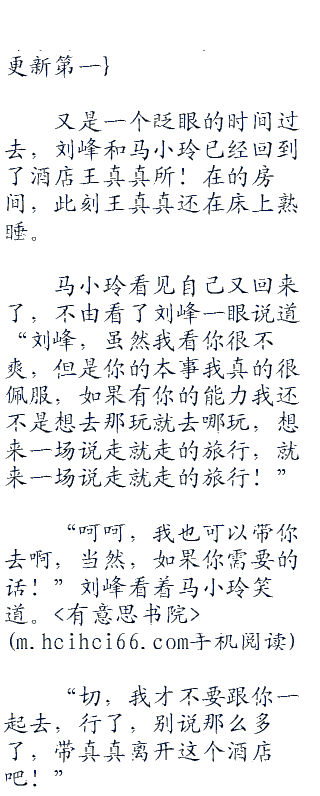 更新第一}
又是一个眨眼的时间过
去，刘峰和马小玲已经回到
了酒店王真真所！在的房
间，此刻王真真还在床上熟
睡。
马小玲看见自己又回来
了，不由看了刘峰一眼说道
“刘峰，虽然我看你很不
爽，但是你的本事我真的很
佩服，如果有你的能力我还
不是想去那玩就去哪玩，想
来一场说走就走的旅行，就
来一场说走就走的旅行！”
“呵呵，我也可以带你
去啊，当然，如果你需要的
话！”刘峰看着马小玲笑
道。<有意思书院>
(m.hcihci66.com手机阅读)
“切，我才不要跟你一
起去，行了，别说那么多
了，带真真离开这个酒店
吧！”